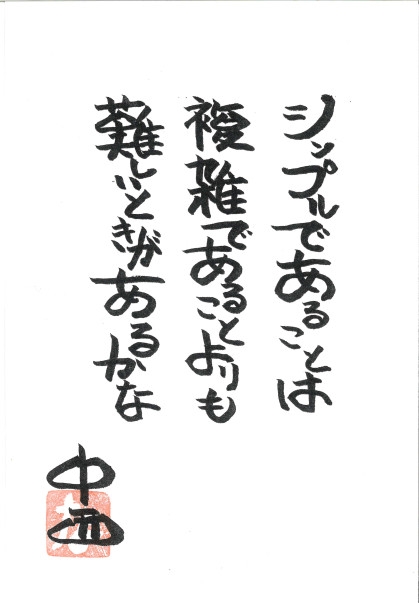 シンプルであることは
複雑であることよりも
難しいときがあるかな
中西
な